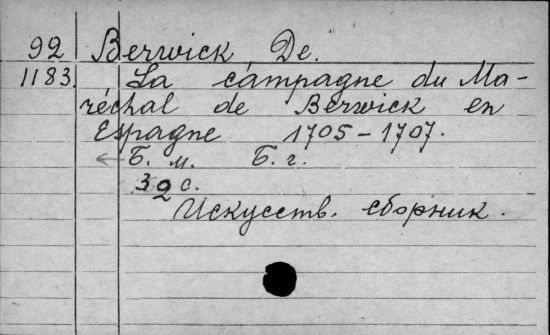 92 Berwick De.
1183. La campagne du Ma-
réchal de Berwick en
Espagne 1705-1707.
← Б. м. Б. г.
32 с.
Искусств. сборник.